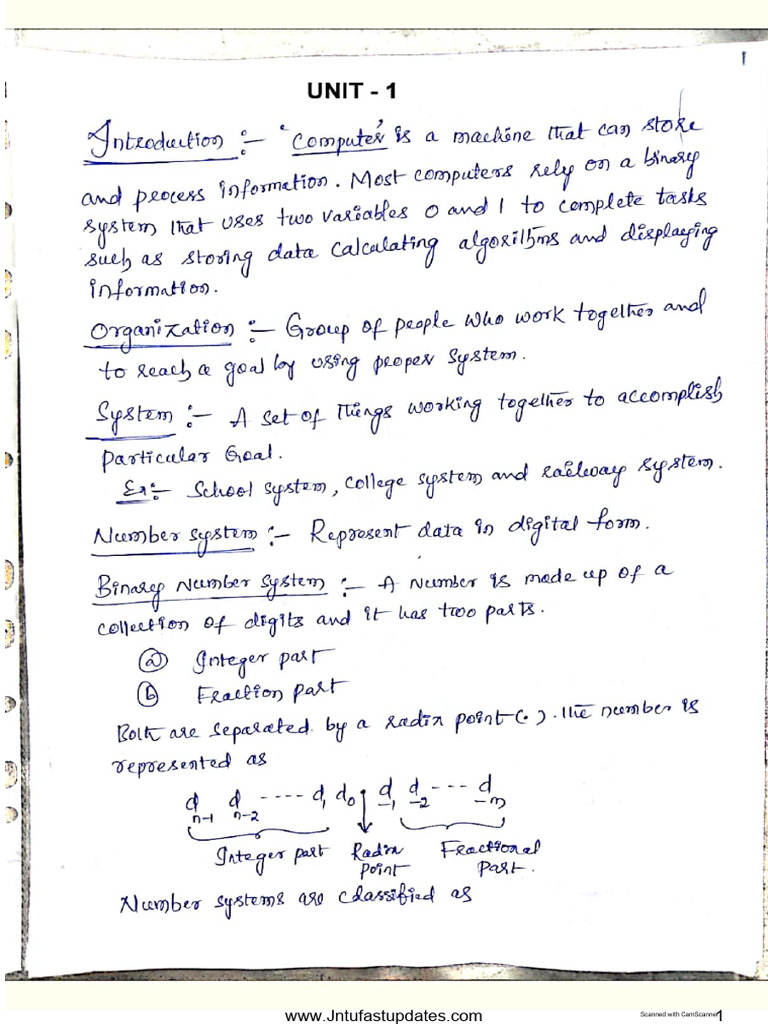 1
UNIT - 1
Introduction :- 'Computer' is a machine that can store
and process information. Most computers rely on a binary
system that uses two variables 0 and 1 to complete tasks
such as storing data calculating algorithms and displaying
information.
Organization :- Group of people who work together and
to reach a goal by using proper system.
System :- A set of things working together to accomplish
particular Goal.
Ex:- School system, college system and railway system.
Number system :- Represent data in digital form.
Binary Number System :- A Number is made up of a
collection of digits and it has two parts.
(a) Integer part
(b) Fraction part
Both are separated by a radix point (.). The number is
represented as
d n-1 d n-2 ---- d1 d0 . d-1 d-2 --- d-m
Integer part Radix Point Fractional Part.
Number systems are classified as
www.Jntufastupdates.com
Scanned with CamScanner
1